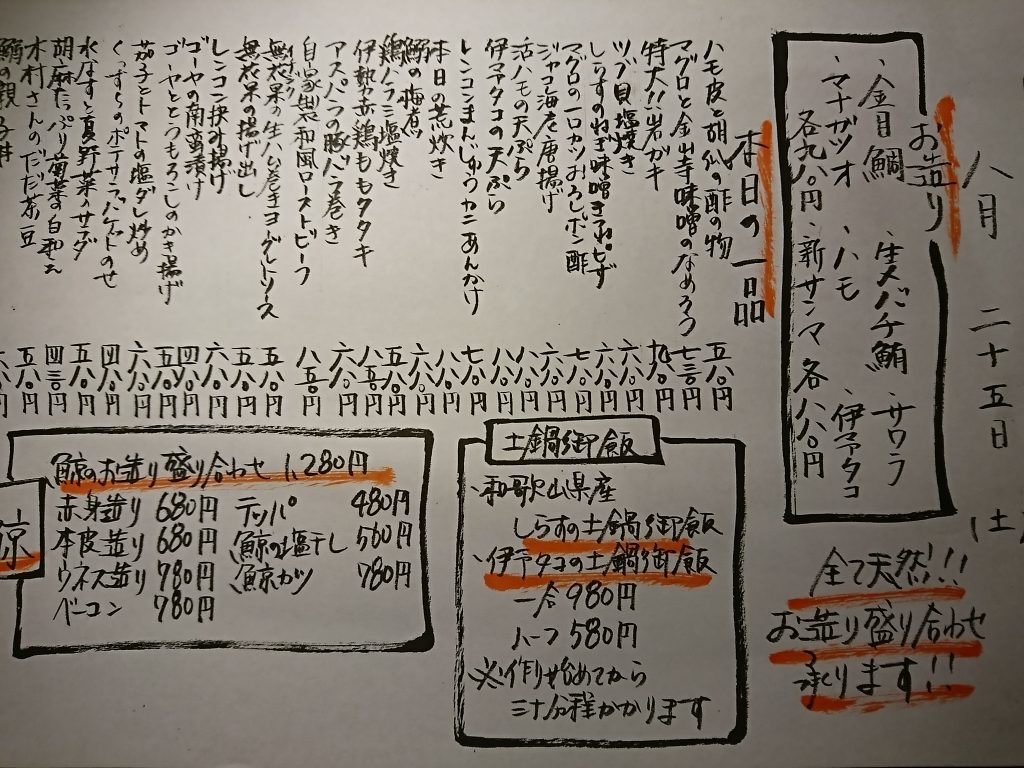 八月 二十五日 (土
お造り
・金目鯛 ・生メバチ鮪 ・サワラ
・マナガツオ ・ハモ ・伊予タコ
各九八〇円 ・新サンマ 各八八〇円
全て天然!!
お造り盛り合わせ
承ります!!
本日の一品
ハモ皮と胡瓜の酢の物 五八〇円
マグロと金山寺味噌のなめろう 七三〇円
特大!!岩ガキ 九八〇円
ツブ貝塩焼き 六八〇円
しらすのねぎ味噌きつねピザ 六八〇円
マグロの一口カツおろしポン酢 七八〇円
ジャコと海老の唐揚げ 六八〇円
活ハモの天ぷら 八八〇円
伊予タコの天ぷら 八八〇円
レンコンまんじゅうカニあんかけ 七八〇円
本日の荒炊き 八八〇円
鰯の梅煮 六八〇円
鶏ハラミ塩焼き 五八〇円
伊勢赤鶏ももタタキ 八五〇円
アスパラの豚バラ巻き 六八〇円
自家製和風ローストビーフ 八五〇円
無花果の生ハム巻きヨーグルトソース 五八〇円
無花果の揚げ出し 五八〇円
レンコン挟み揚げ 六八〇円
ゴーヤの南蛮漬け 四八〇円
ゴーヤととうもろこしのかき揚げ 五八〇円
茄子とトマトの塩ダレ炒め 六八〇円
くんずらのポテサラバケットのせ 四八〇円
水茄子と夏野菜のサラダ 五八〇円
胡麻たっぷり菊菜の白和え 四三〇円
木村さんのだだ茶豆 五八〇円
鰯の親子丼
土鍋御飯
・和歌山県産
しらすの土鍋御飯
・伊予タコの土鍋御飯
一合 980円
ハーフ 580円
※作り始めてから
三十分程かかります
鯨のお造り盛り合わせ 1,280円
赤身造り 680円 テッパ 480円
本皮造り 680円 鯨の塩干し 560円
ウネス造り 780円 鯨カツ 780円
ベーコン 780円